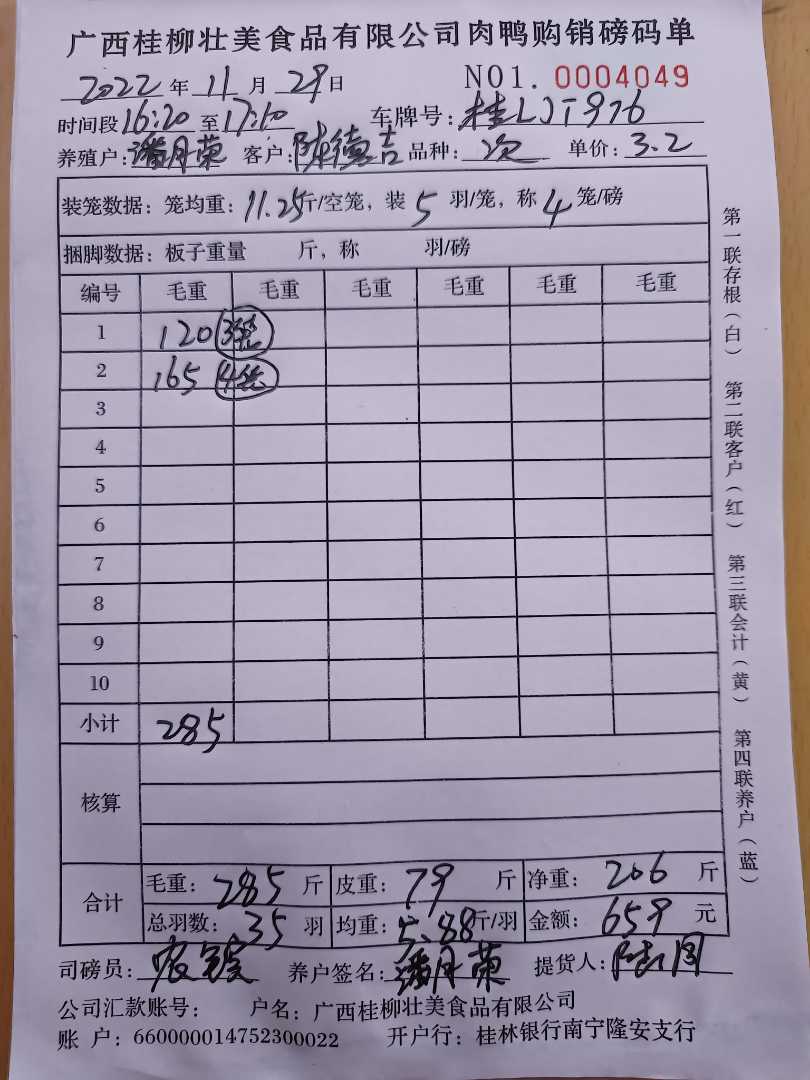 广西桂柳壮美食品有限公司肉鸭购销磅码单
2022年11月29日 NO1. 0004049
时间段16:20至17:10 车牌号:桂LJT976
养殖户:潘月荣 客户:陈德吉 品种:次 单价:3.2
装笼数据:笼均重:11.25斤/空笼,装5羽/笼,称4笼/磅
捆脚数据:板子重量 斤,称 羽/磅
编号 毛重 毛重 毛重 毛重 毛重 毛重
1 120 3笼
2 165 4笼
3
4
5
6
7
8
9
10
小计 285
核算
合计 毛重:285斤 皮重:79斤 净重:206斤
总羽数:35羽 均重:5.88斤/羽 金额:659元
司磅员: 养户签名:潘月荣 提货人:
公司汇款账号: 户名:广西桂柳壮美食品有限公司
账 户:660000014752300022 开户行:桂林银行南宁隆安支行
第一联存根(白) 第二联客户(红) 第三联会计(黄) 第四联养户(蓝)